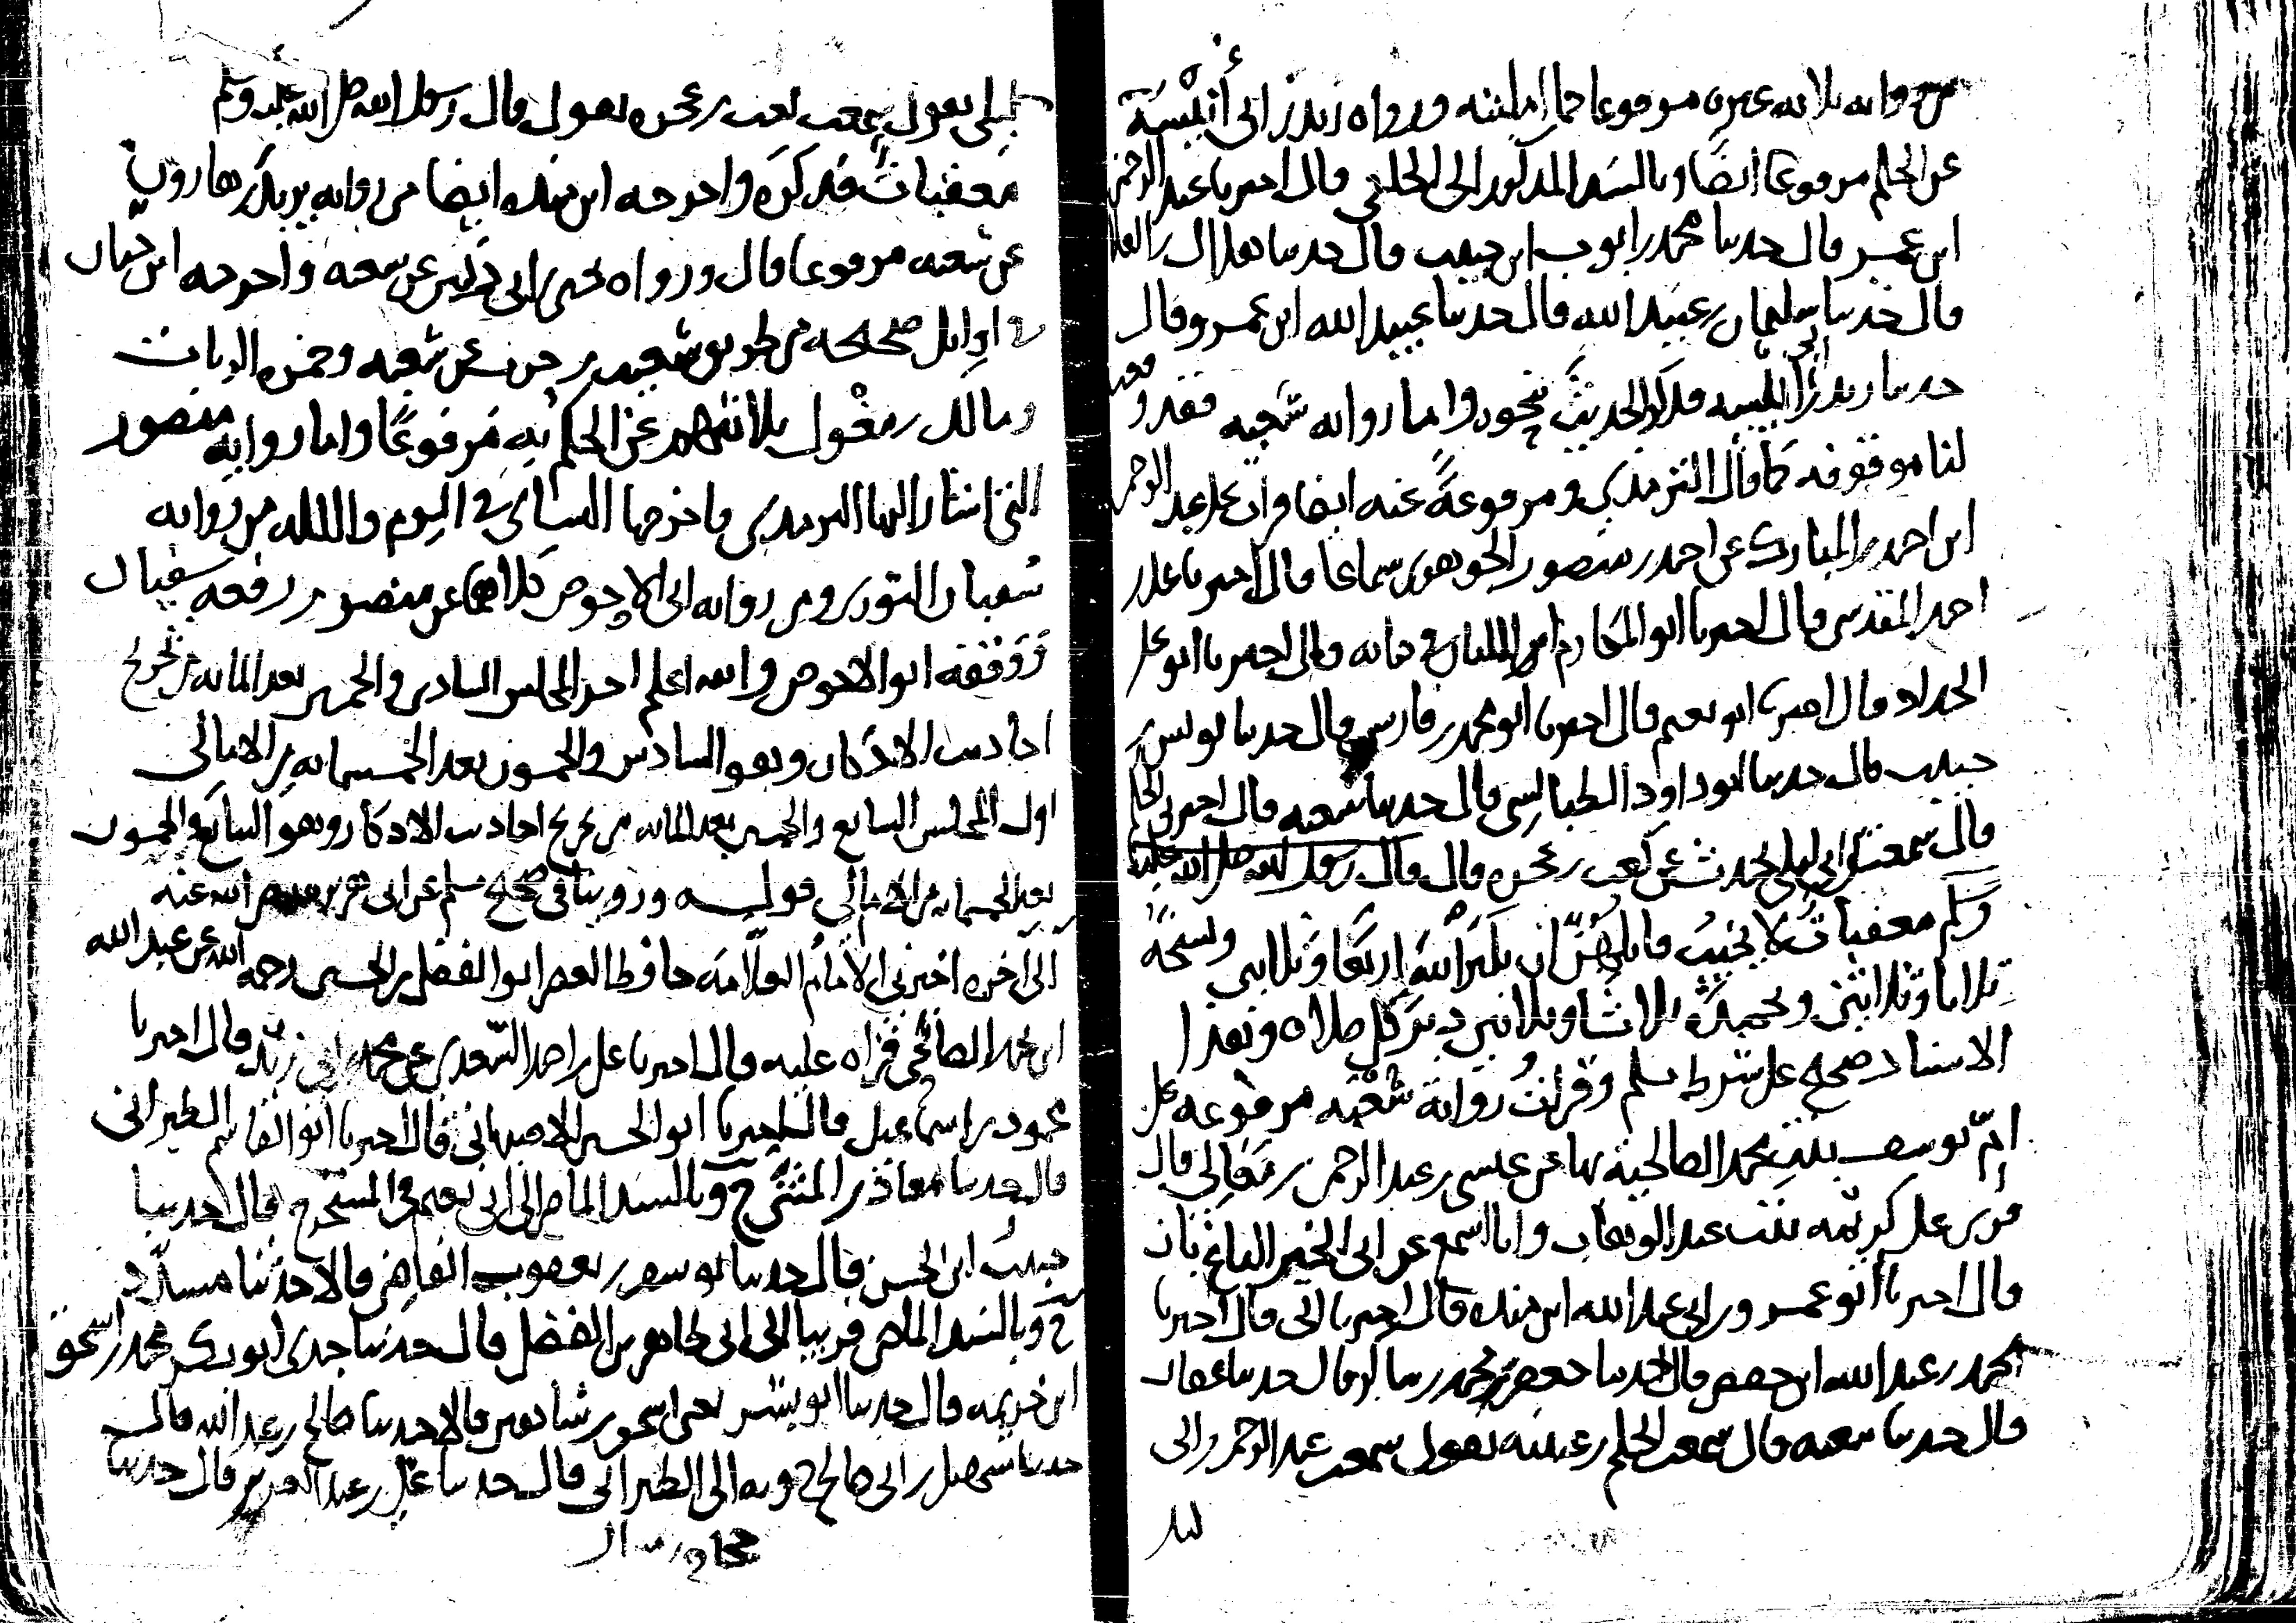 من رواية ثلاثة غيره مرفوعا كما امليته ورواه زيد بن ابي أُنَيْسَة
عن الحكم مرفوعا أيضًا وبالسند المذكور الى الخلعي قال اخبرنا عبد الرحمن
ابن عمر قال حدثنا محمد بن ايوب ابن حبيب قال حدثنا هلال بن العلا
قال حدثنا سليمان بن عبيد الله قال حدثنا عبيد الله ابن عمرو قال
حدثنا زيد بن ابي انيسه فذكر الحديث نحوه واما رواية شعبه فقد وقعت
لنا موقوفه كما قال الترمذي ومرفوعةً عنه ايضا قرات على عبد الرحمن
ابن احمد بن المبارك عن احمد بن منصور الجوهري سماعا قال اخبرنا على بن
احمد المقدسي قال اخبرنا ابو المكارم ابن اللبان في كتابه قال اخبرنا ابو على
الحداد قال اخبرنا ابو نعيم قال اخبرنا ابو محمد بن فارس قال حدثنا يونس بن
حبيب قال حدثنا ابو داود الطيالسي قال حدثنا شعبه قال اخبرني الحكم
قال سمعت ابن ابي ليلى يحدث عن كعب بن عجره قال قال رسول الله صلى الله عليه
وسلم معقباتٌ لا يخيب قايلهن ان يكبر الله اربعا وثلاثين ويسبحه
ثلاثا وثلاثين ويحمده ثلاثا وثلاثين دبر كل صلاه وهذا
الاسناد صحيح على شرط مسلم وقرات رواية شعبه مرفوعه على
امّ يوسف بنت محمد الصالحية بها عن عيسى بن عبد الرحمن بن معالي قال
قرئ على كريمه بنت عبد الوهاب وانا اسمع عن ابي الخير الباغبان
قال اخبرنا أبو عمرو بن ابي عبد الله ابن منده قال اخبرنا ابي قال اخبرنا
محمد بن عبد الله ابن حفص قال حدثنا جعفر بن محمد بن شاكر قال حدثنا عفان
قال حدثنا شعبه قال سمعت الحكم بن عتيبه يقول سمعت عبد الرحمن بن ابي
ليلى
ليلى يقول سمعت كعب بن عجره يقول قال رسول الله صلى الله عليه وسلم
معقباتٌ فذكره واخرجه ابن منده ايضا من رواية يزيد بن هارون
عن شعبه مرفوعا قال ورواه يحيى بن ابي بكير عن شعبه واخرجه ابن حبان
في اوايل صحيحه من طريق شعيب بن حرب عن شعبه وحمزه الزيات
ومالك بن مغول ثلاثتهم عن الحكم به مرفوعًا واما رواية منصور
التي اشار اليها الترمذي فاخرجها النسائي في اليوم والليله من رواية
سفيان الثوري ومن رواية ابي الاحوص كلاهما عن منصور رفعه سفيان
ووقفه ابو الاحوص والله اعلم اخر المجلس السادس والخمسين بعد المائه من تخريج
احاديث الاذكار وهو السادس والخمسون بعد الخمسمايه من الامالي
اول المجلس السابع والخمسين بعد المائه من تخريج احاديث الاذكار وهو السابع والخمسون
بعد الخمسمائه من الامالي قوله وروينا في صحيح مسلم عن ابي هريرة رضي الله عنه
الى اخره اخبرني الامام العلّامه حافظ العصر ابو الفضل بن الحسين رحمه الله عن عبد الله
ابن محمد الصالحي قراه عليه قال اخبرنا على بن احمد السعدي عن محمد بن ابي زيد قال اخبرنا
محمود بن اسماعيل قال اخبرنا ابو الحسين الاصبهاني قال اخبرنا ابو القاسم الطبراني
قال حدثنا معاذ بن المثنى ح وبالسند الماضي الى ابي نعيم في المستخرج قال حدثنا
حبيب ابن الحسن قال حدثنا يوسف بن يعقوب القاضي قالا حدثنا مسدّد
ح وبالسند الماضي قريبا الى ابي طاهر بن الفضل قال حدثنا جدي ابو بكر محمد بن اسحق
ابن خزيمه قال حدثنا ابو بشر يعني اسحق بن شاهين قالا حدثنا خالد بن عبد الله قال
حدثنا سهيل بن ابي صالح ح وبه الى الطبراني قال حدثنا على بن عبد العزيز قال حدثنا